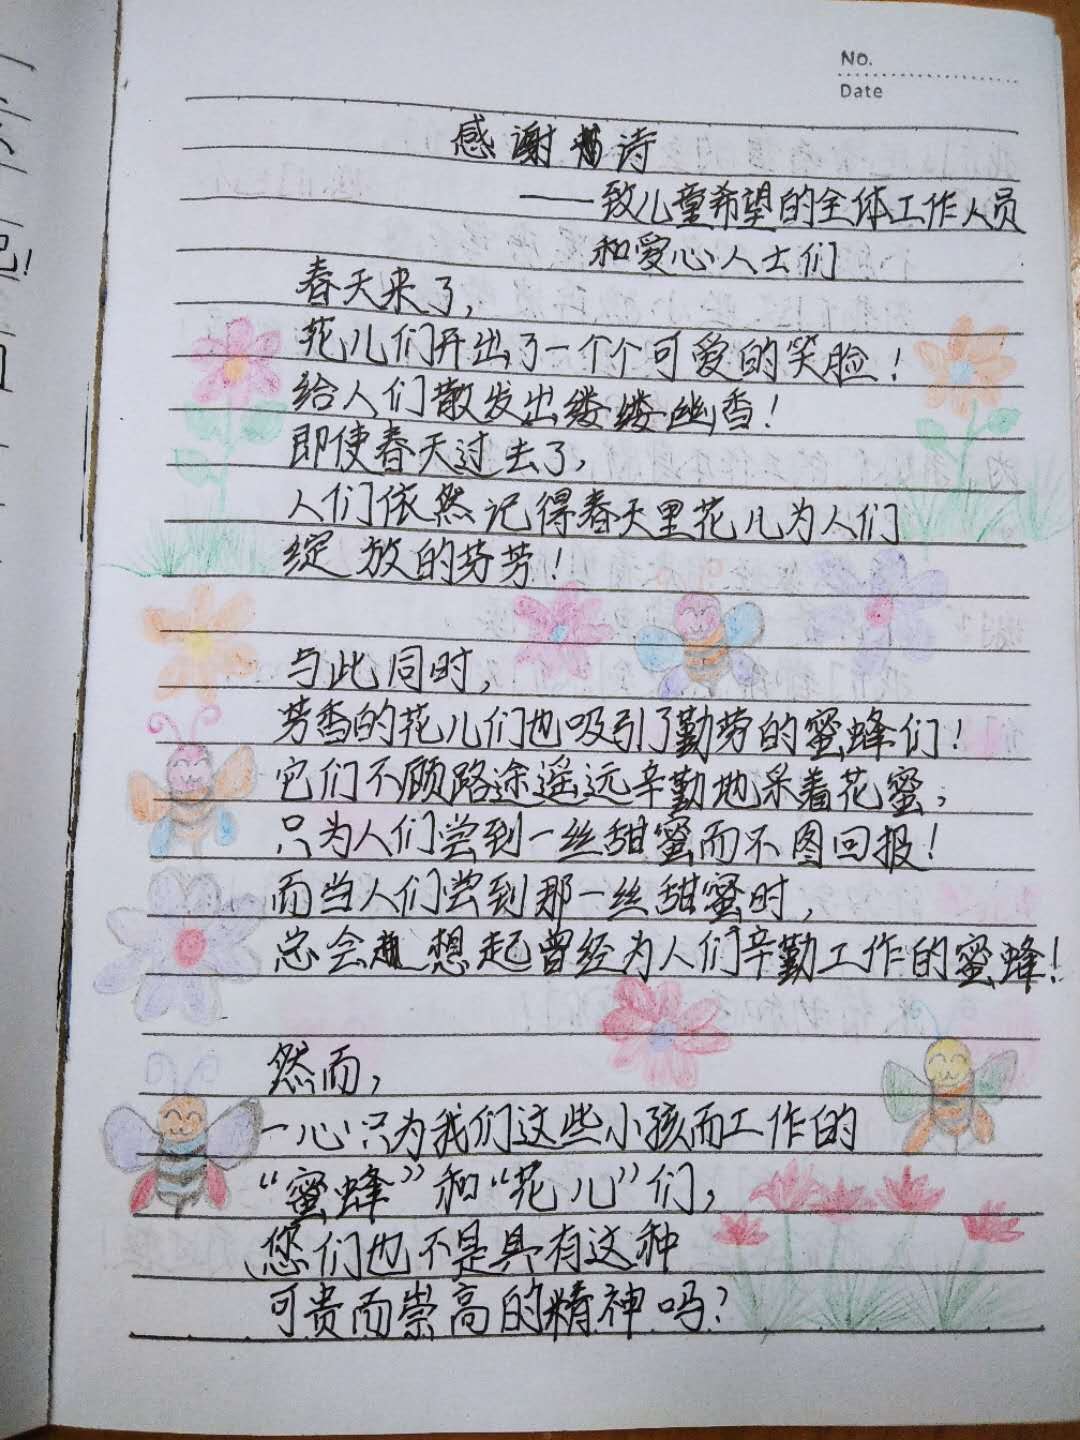 No.
Date
感谢诗
——致儿童希望的全体工作人员
和爱心人士们
春天来了,
花儿们开出了一个个可爱的笑脸!
给人们散发出缕缕幽香!
即使春天过去了,
人们依然记得春天里花儿为人们
绽放的芬芳!
与此同时,
芳香的花儿们也吸引了勤劳的蜜蜂们!
它们不顾路途遥远辛勤地采着花蜜,
只为人们尝到一丝甜蜜而不图回报!
而当人们尝到那一丝甜蜜时,
总会想起曾经为人们辛勤工作的蜜蜂!
然而,
一心只为我们这些小孩而工作的
“蜜蜂”和“花儿”们,
您们也不是具有这种
可贵而崇高的精神吗?